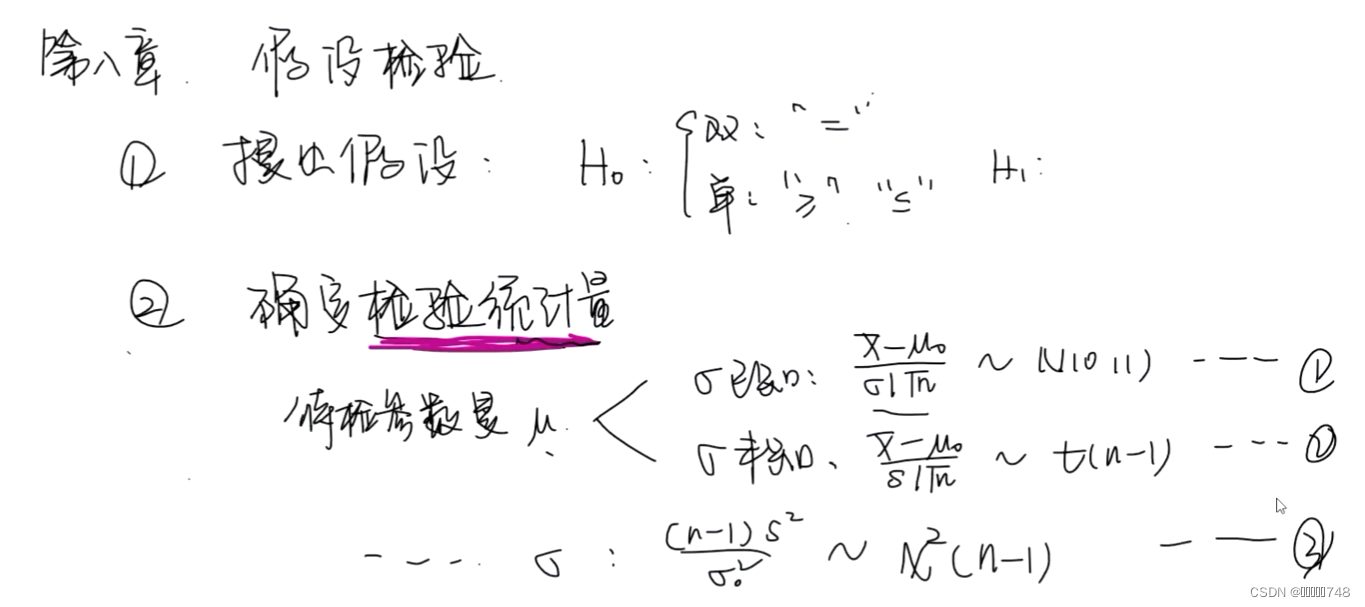 第八章 假设检验
① 提出假设: H₀: { 双: "="
单: "≥" "≤" H₁:
② 确定检验统计量
待检参数是 μ. < σ已知: (x̄-μ₀)/(σ/√n) ~ N(0,1) ---- ①
σ未知、 (x̄-μ₀)/(S/√n) ~ t(n-1) ---- ②
---- σ: (n-1)S²/σ₀² ~ χ²(n-1) —— ③
CSDN @748